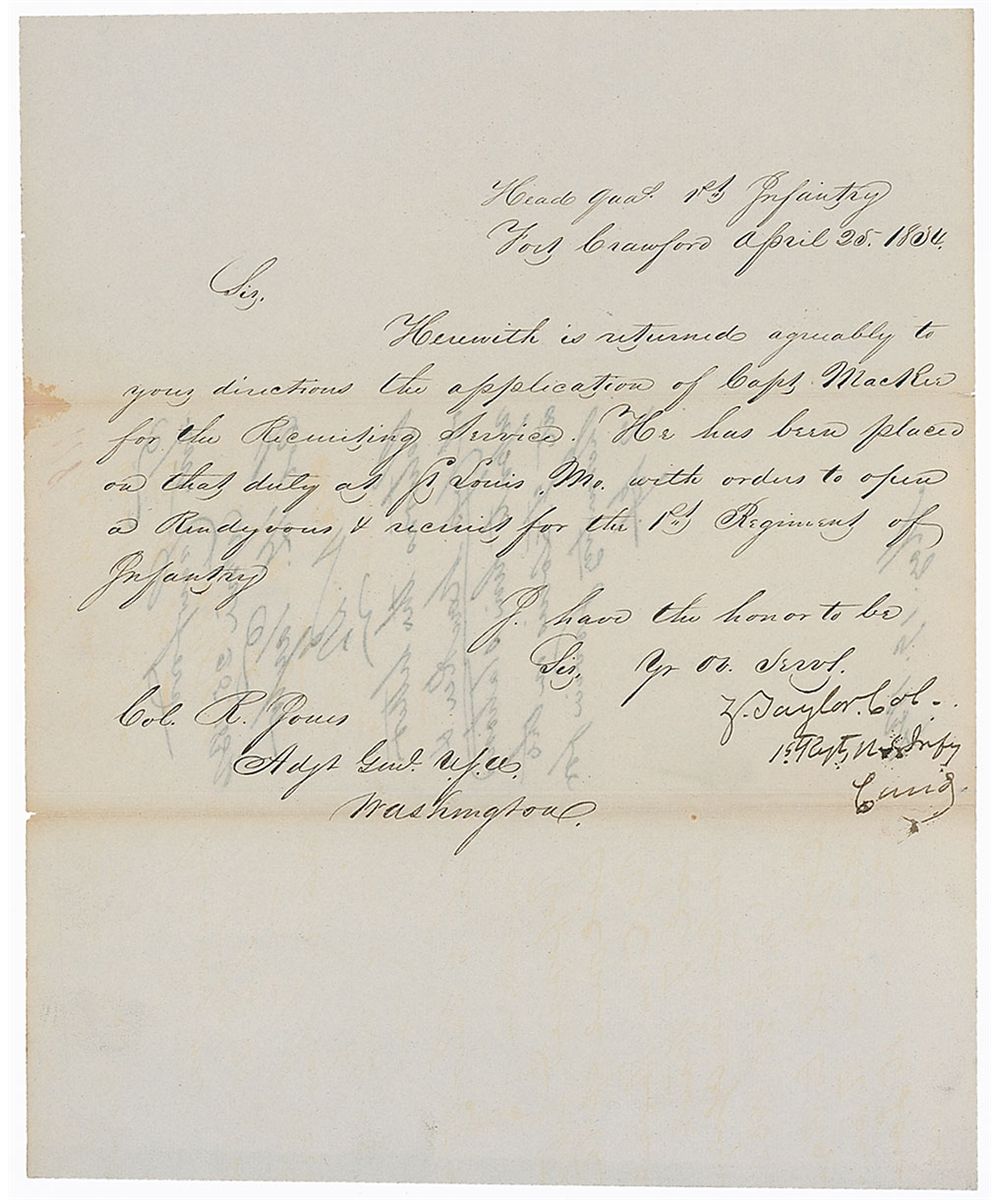 Head Quas. 1st Infantry
Fort Crawford April 25. 1834.
Sir,
Herewith is returned agreably to
your directions the application of Capt MacKee
for the Recruiting Service. He has been placed
on that duty at St Louis, Mo. with orders to open
a Rendezvous & recruit for the 1st Regiment of
Infantry
I. have the honor to be
Sir, Yr Ob. Servt.
Z. Taylor. Col.
1st Regt, U.S. Infy
Comd.
Col. R. Jones
Adjt Genl. U.S.A.
Washington.